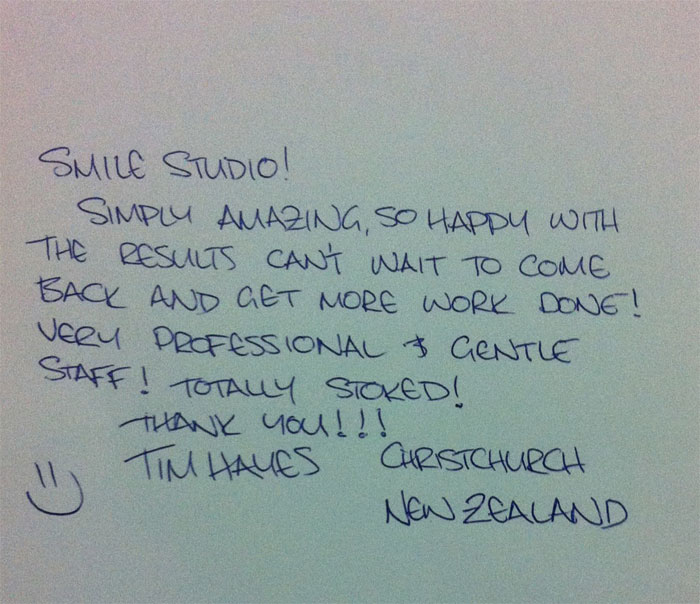 SMILE STUDIO!
SIMPLY AMAZING, SO HAPPY WITH
THE RESULTS CAN'T WAIT TO COME
BACK AND GET MORE WORK DONE!
VERY PROFESSIONAL & GENTLE
STAFF! TOTALLY STOKED!
THANK YOU!!!
TIM HAYES CHRISTCHURCH
NEW ZEALAND